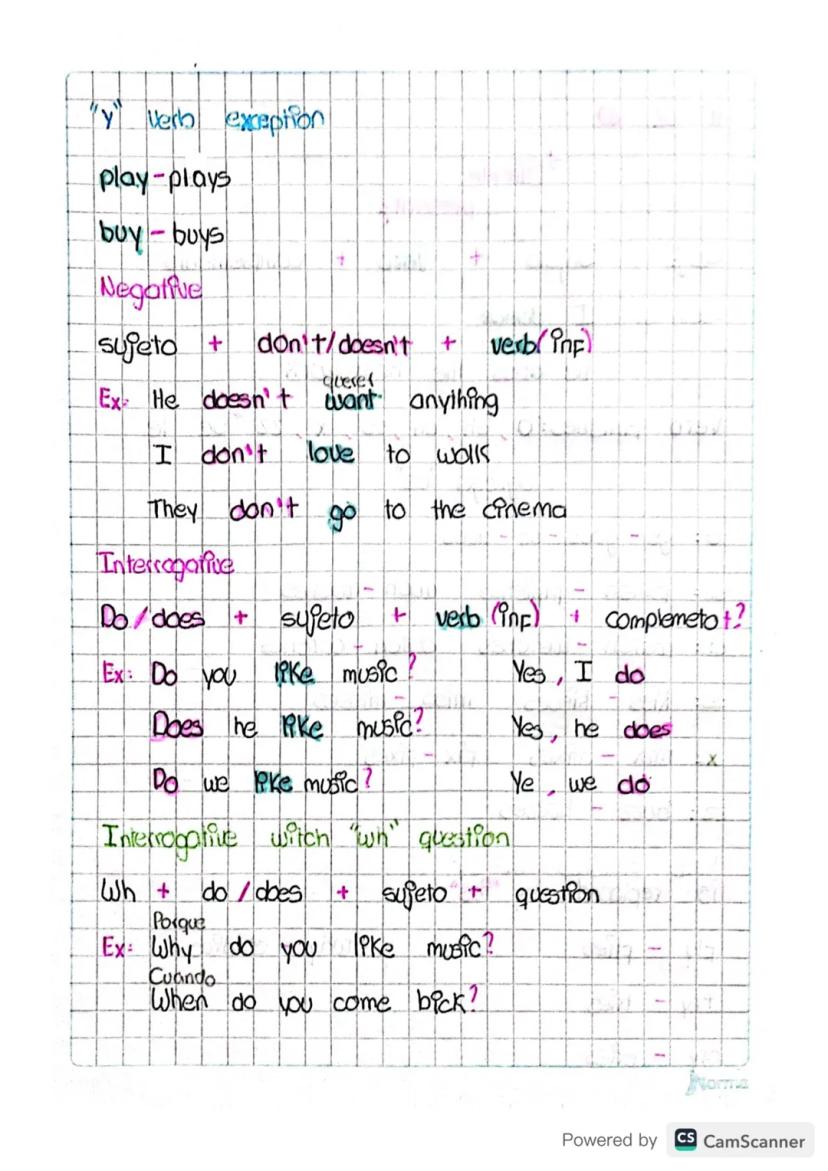 "y" verb exception
play - plays
buy - buys
Negative
sujeto + don't/doesn't + verb(inf)
querer
Ex: He doesn't want anything
I don't love to walls
They don't go to the cinema
Interrogative
Do/does + sujeto + verb (inf) + complemeto+?
Ex: Do you like music? Yes, I do
Does he like music? Yes, he does
Do we like music? Ye, we do
Interrogative witch "wh" question
Wh + do/does + sujeto + question
Porque
Ex: Why do you like music?
Cuando
When do you come bick?
Norma
Powered by CS CamScanner